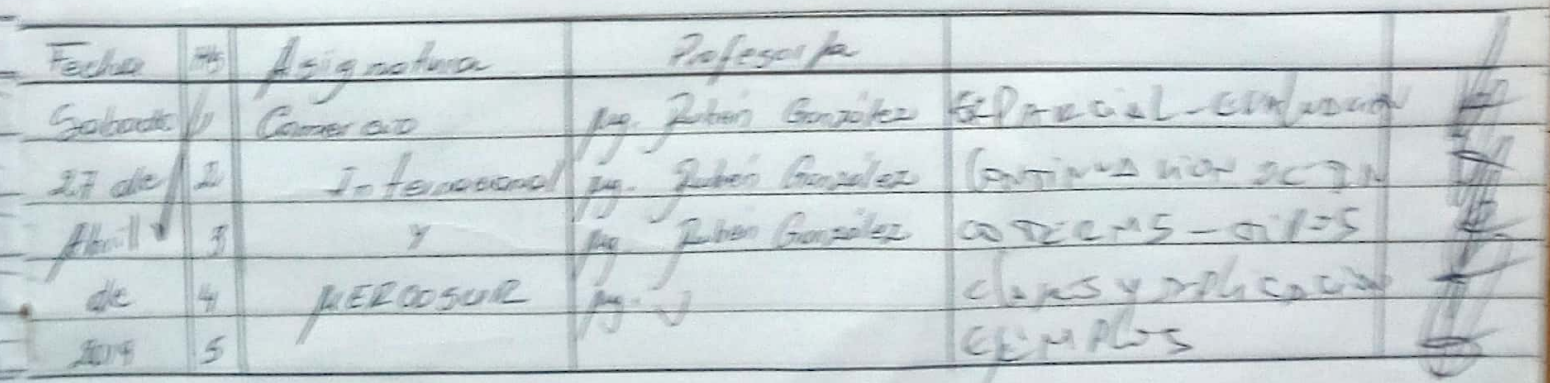 Fecha Hs Asignatura Profesor/a
Sabado 1 Comercio Mg. Rubén González Parcial - evaluacion
27 de 2 Internacional Mg. Rubén González Continuacion de IN
Abril 3 y Mg. Rubén González COTERMS - tipos
de 4 MERCOSUR Mg. clases y aplicación
2019 5 EJEMPLOS